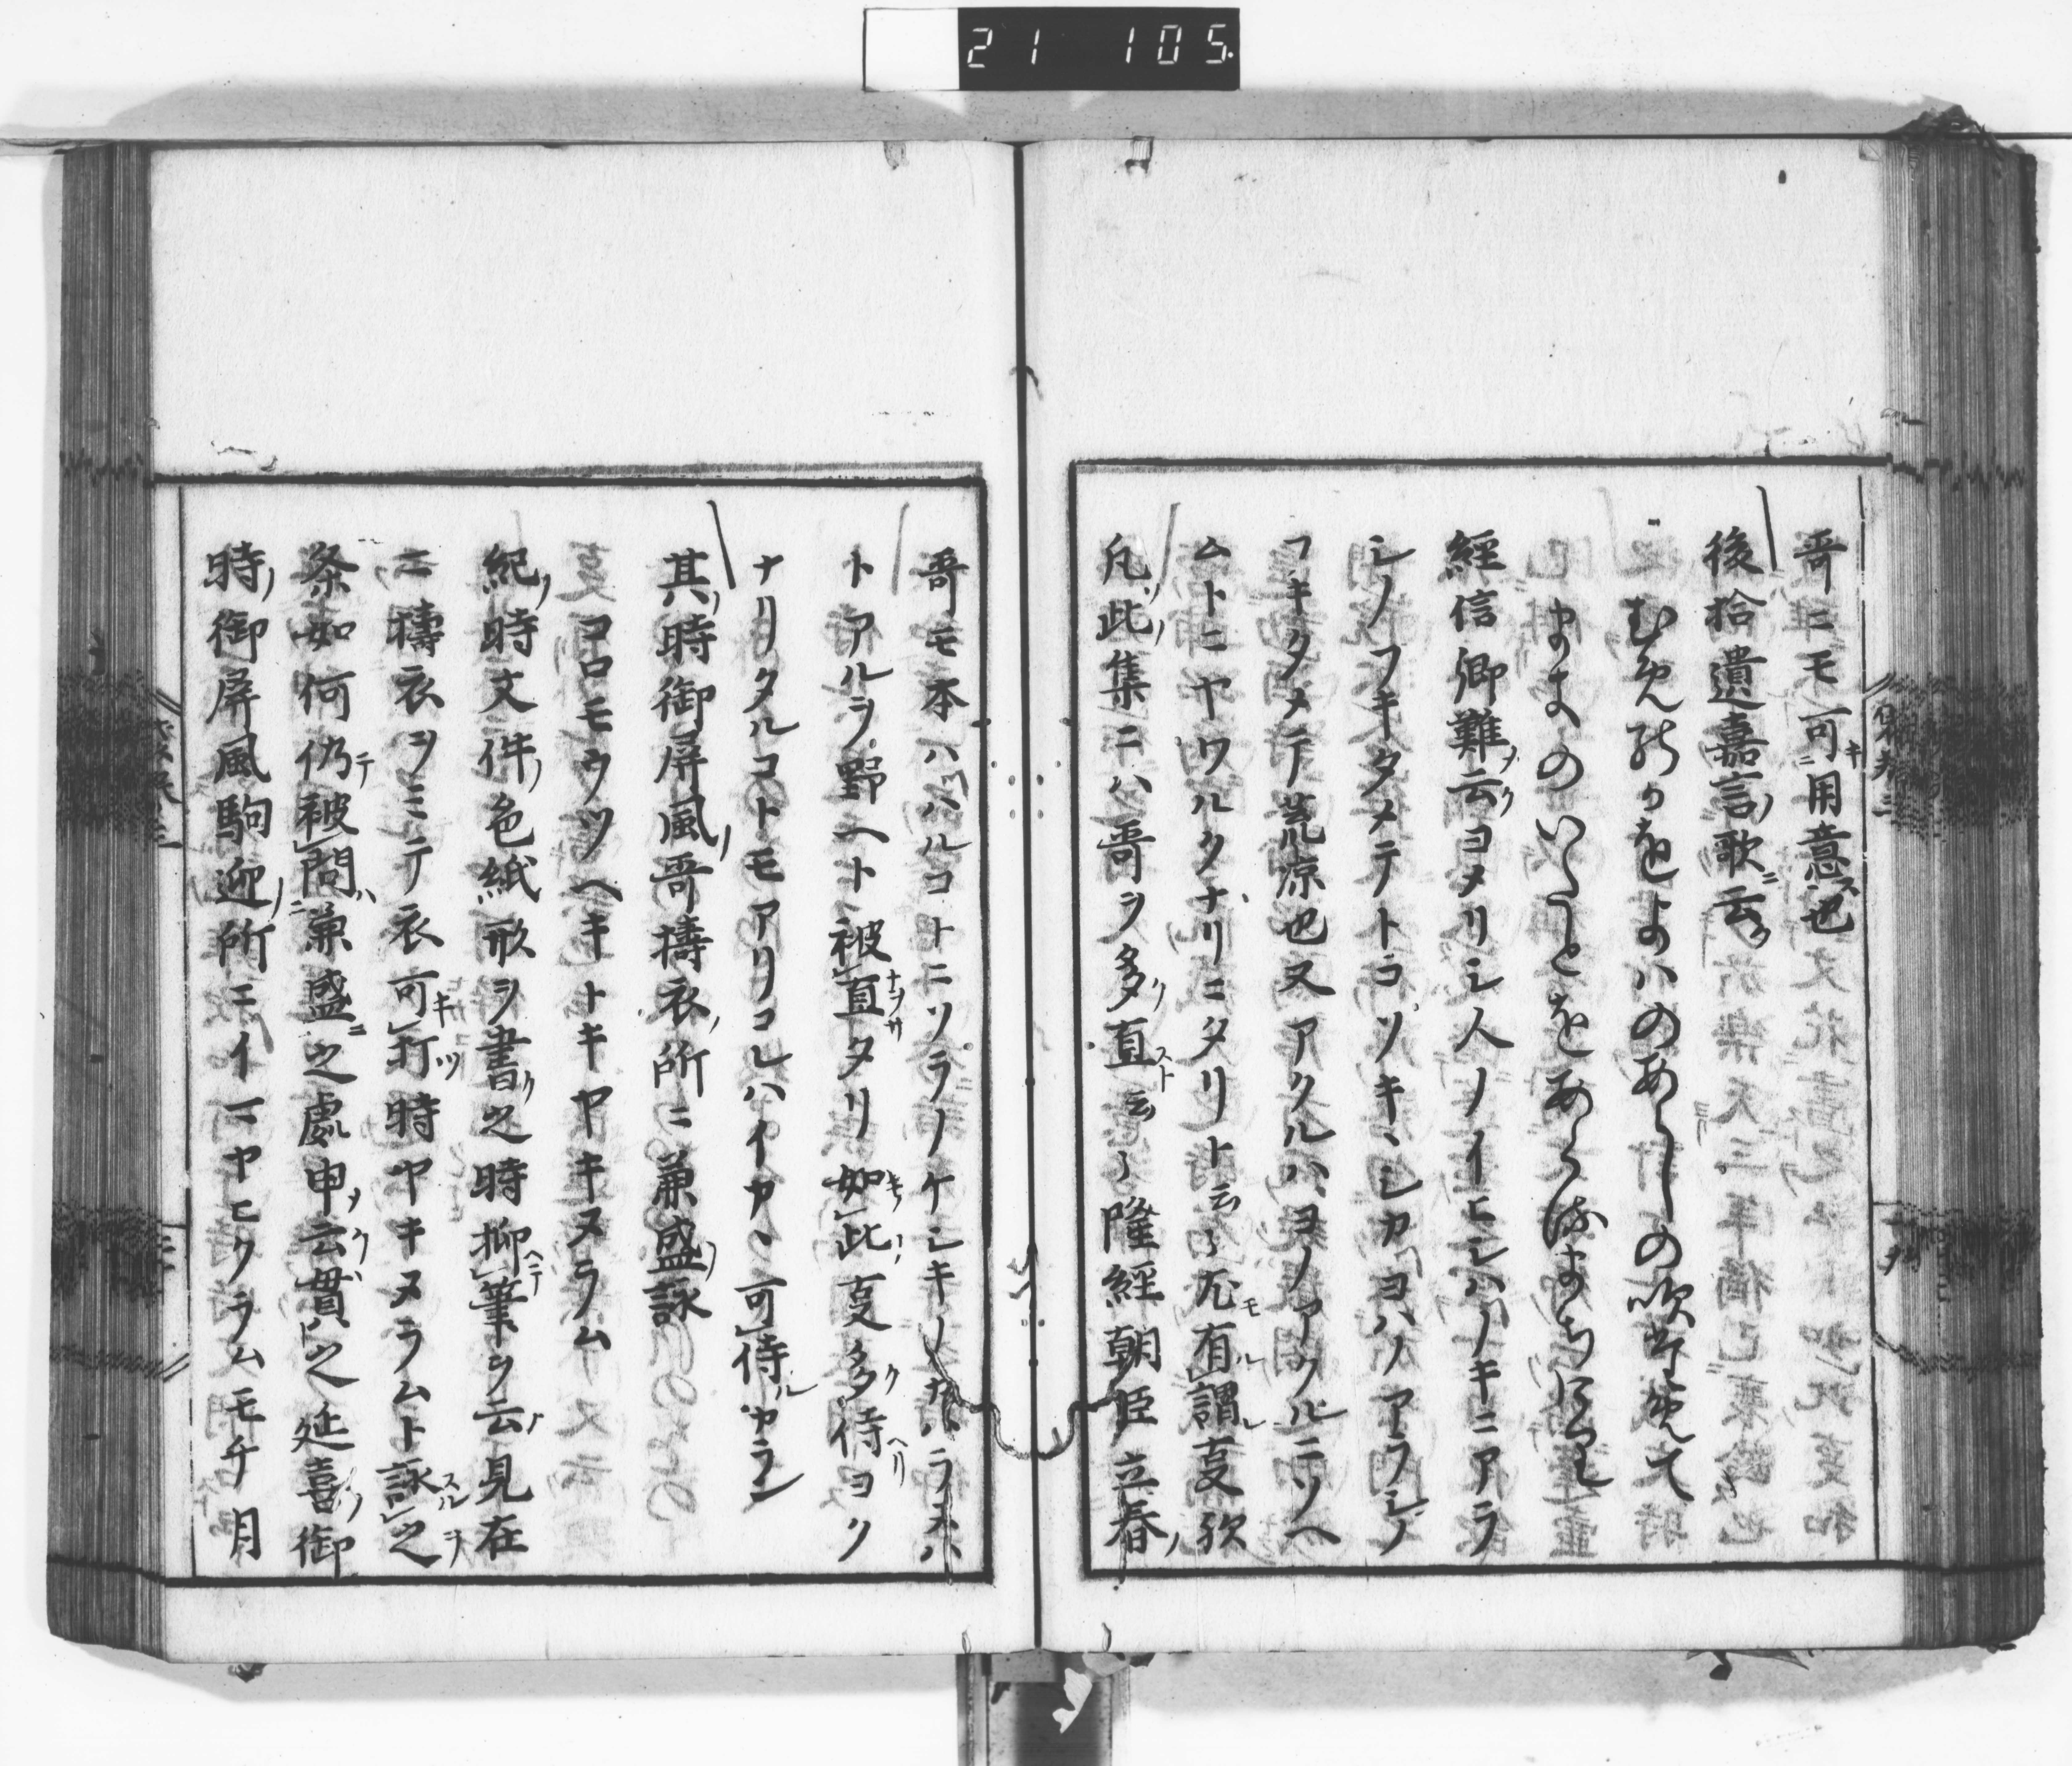 21 105
哥ニモ可用意也
後拾遺嘉言歌云
むめのかをよはのあらしの吹ためて
まきのいたとをあくるまちける
經信卿難云ヨメリシ人ノイヒシハノキニアラ
シノフキタメテトコソキヽシカヨハノアラシノ
フキタメテ荒凉也又アクルハヨノアクルニソヘ
ムトニヤワルクナリニタリト云〻尤有謂叓歟
凡此集ニハ哥ヲ多直云〻隆經朝臣立春
哥モ本ハハルコトニソラノケシキノカハラスハ
トアルヲ野ヘト被直タリ如此叓多侍ヨク
ナリタルコトモアリコレハイカヽ可侍ヤラン
其時御屏風哥擣衣所ニ兼盛詠
コロモウツヘキトキヤキヌラム
紀時文件色紙形ヲ書之時抑筆ヲ云見在
ニ擣衣ヲミテ衣可打時ヤキヌラムト詠之
条如何仍被問兼盛之處申云貫之延喜御
時御屏風駒迎所ニイマヤヒクラムモチ月